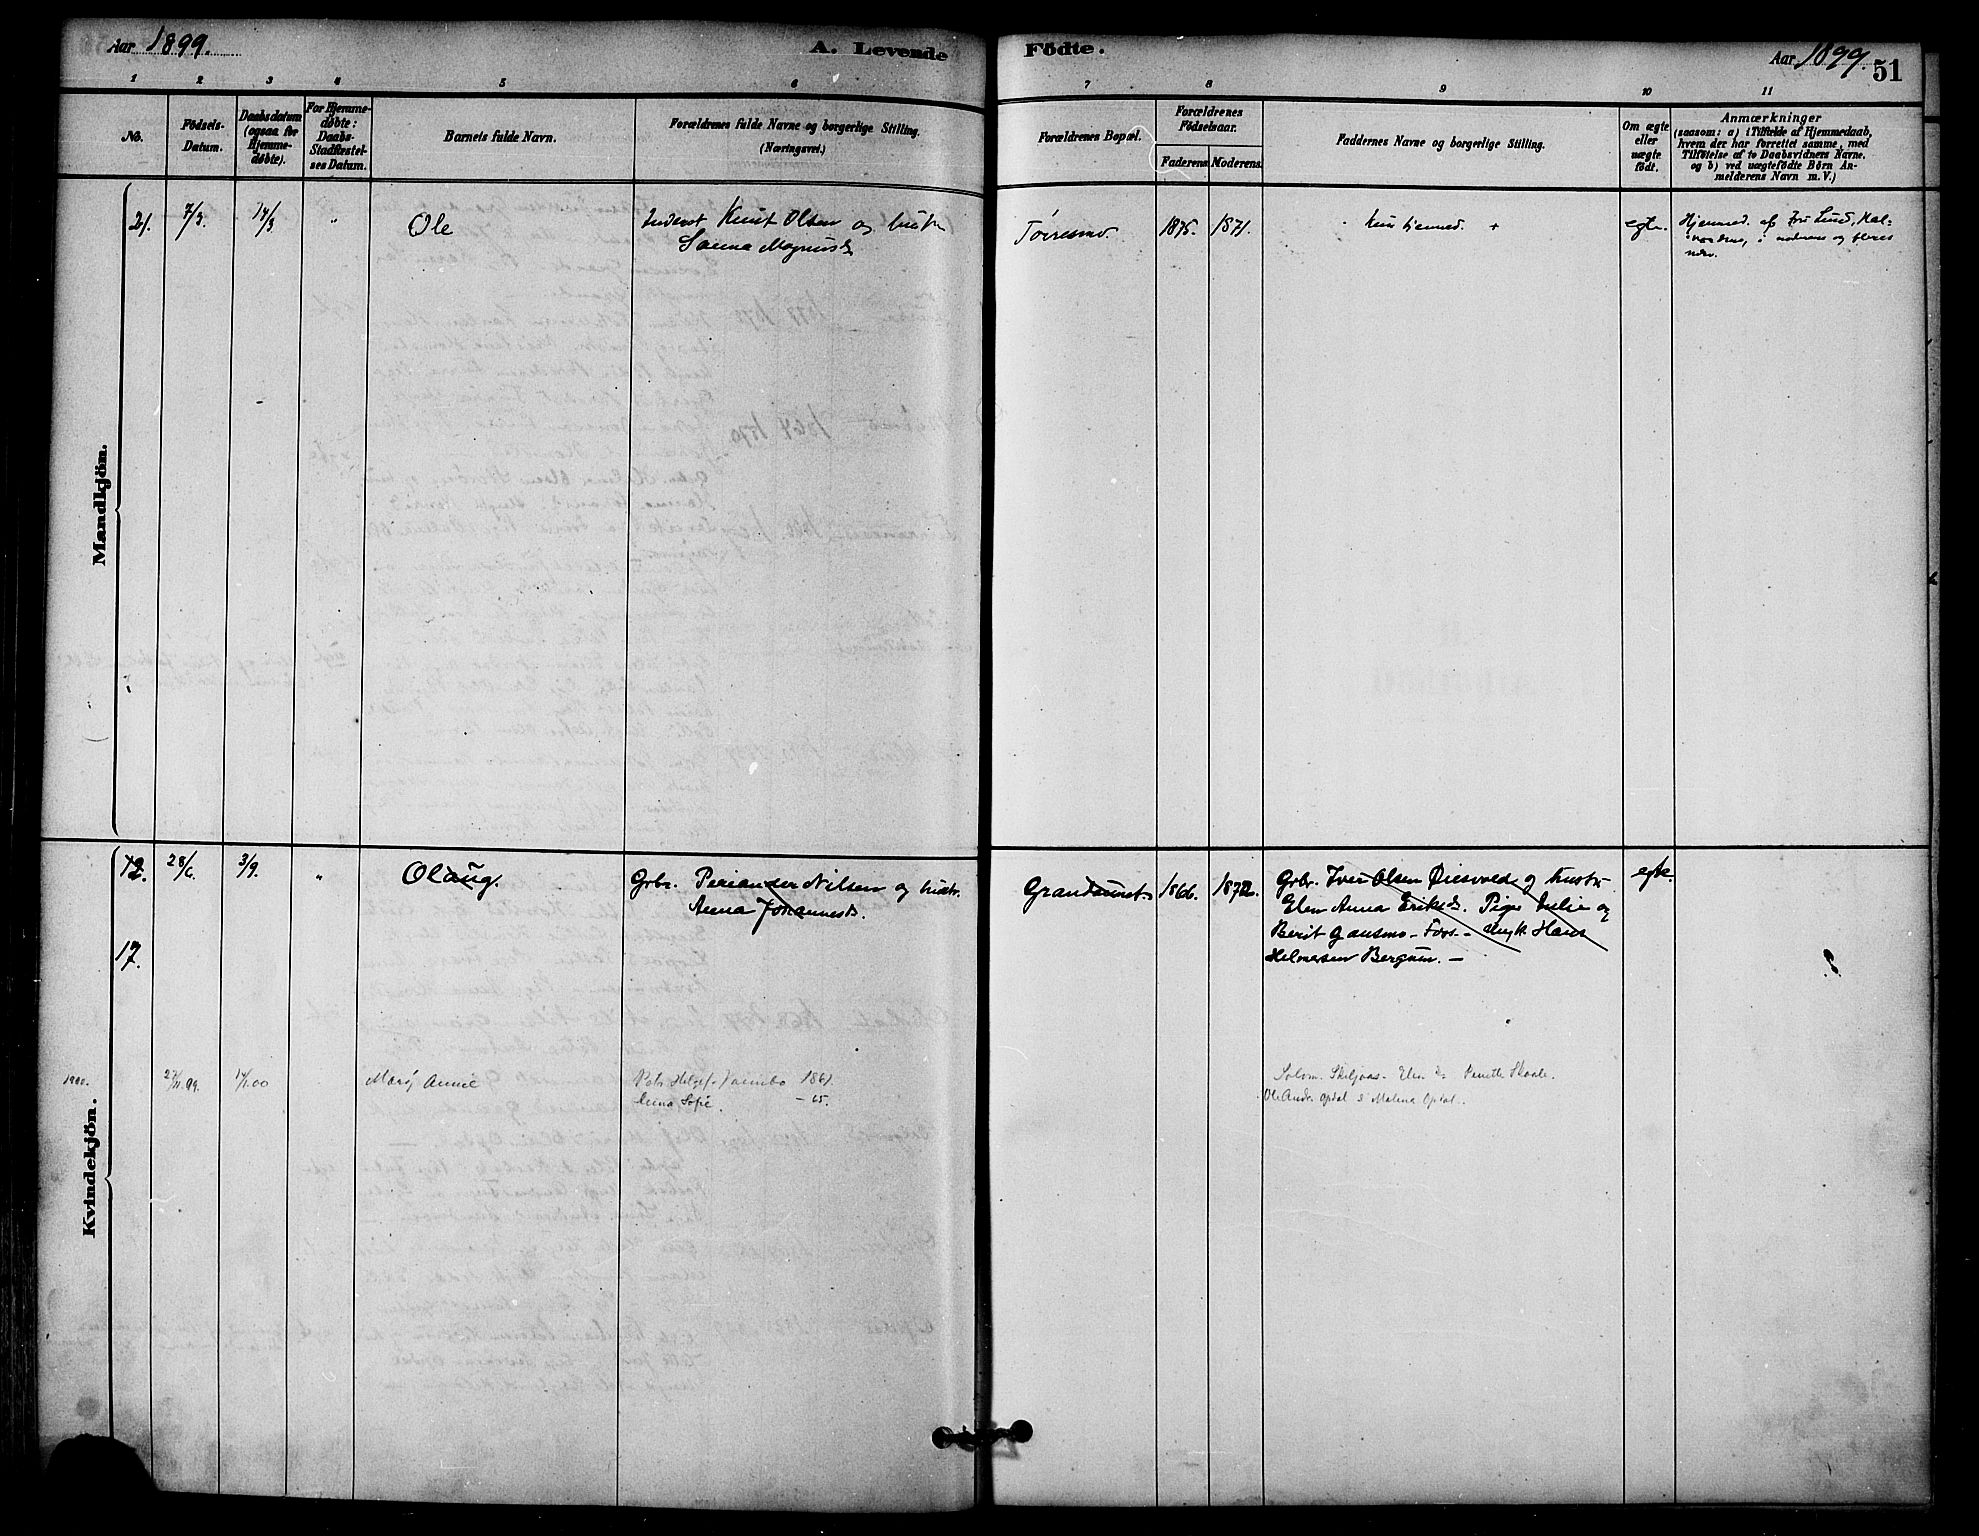 Aar 1899.
A. Levende
Födte.
Aar 1899. 51
1 2 3 4 5 6 7 8 9 10 11
No.
Födsels-
Datum.
Daabsdatum
(ogsaa for
Hjemme-
døbte).
For Hjemme-
døbte:
Daabs-
Stadfæstel-
ses Datum.
Barnets fulde Navn.
Forældrenes fulde Navne og borgerlige Stilling.
(Næringsvei.)
Forældrenes Bopæl.
Forældrenes
Födselsaar.
Faderens. Moderens.
Faddernes Navne og borgerlige Stilling.
Om ægte
eller
uægte
födt.
Anmærkninger
(saasom: a) i Tilfælde af Hjemmedaab,
hvem der har forrettet samme, med
Tilföielse af to Daabsvidners Navne,
og b) ved uægtefödte Börn An-
melderens Navn m. V.)
Mandkjön.
21. 7/3. 14/3 " Ole Knut Olsen og hustr
Sanna Magnusd
Tøiresmo. 1875. 1871. Kun hjemmed. egte. Hjemmed. af
og
Kvindekjön.
12. 28/6. 3/9. " Olaug. Grbr. Periander Nilsen og hustr.
Anna Johannesd.
Grandsunet 1866. 1872. Grbr. Iver Olsen Øiesvold og hustr.
Elen Anna Eriksd. Pige Julie og
Berit Gansmo - Fors - Ungk. Hans
Helmersen Bergum. -
egte.
17.
1900. 27/11.99 14/1.00 Marg Annie Petr Helges. 1861.
Anna Sofie. - 65.
Solom. Skiljaas - Elen Penette Skaale.
Ole Andr Opdal Malena Opdal.